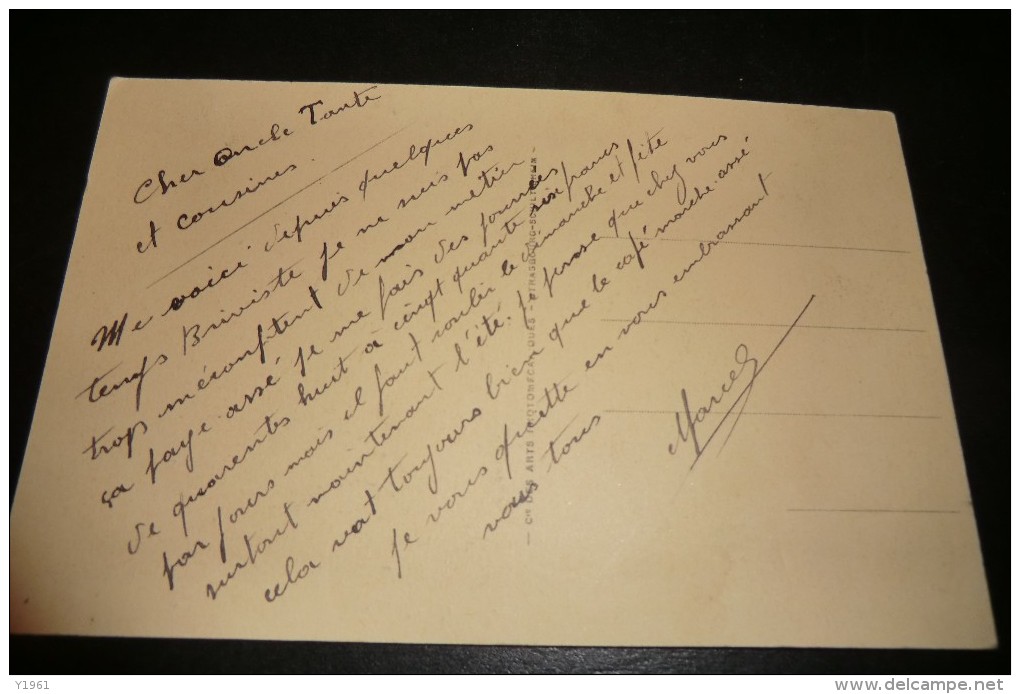 Cher Oncle Tante
et cousines.
Me voici depuis quelques
temps Briviste je ne suis pas
trop mécontent de mon métier
ça paye assé je me fais des journées
de quarentes huit à cinquante six francs
par jours mais il faut rouler le dimanche et fête
surtout maintenant l'été. Je pense que chez vous
cela vat toujours bien que le café marche assé
je vous quitte en vous embrassant
vous tous
Marcel
— Cie DES ARTS PHOTOMECANIQUES - STRASBOURG-SCHILTIGHEIM —
Y1961
www.delcampe.net